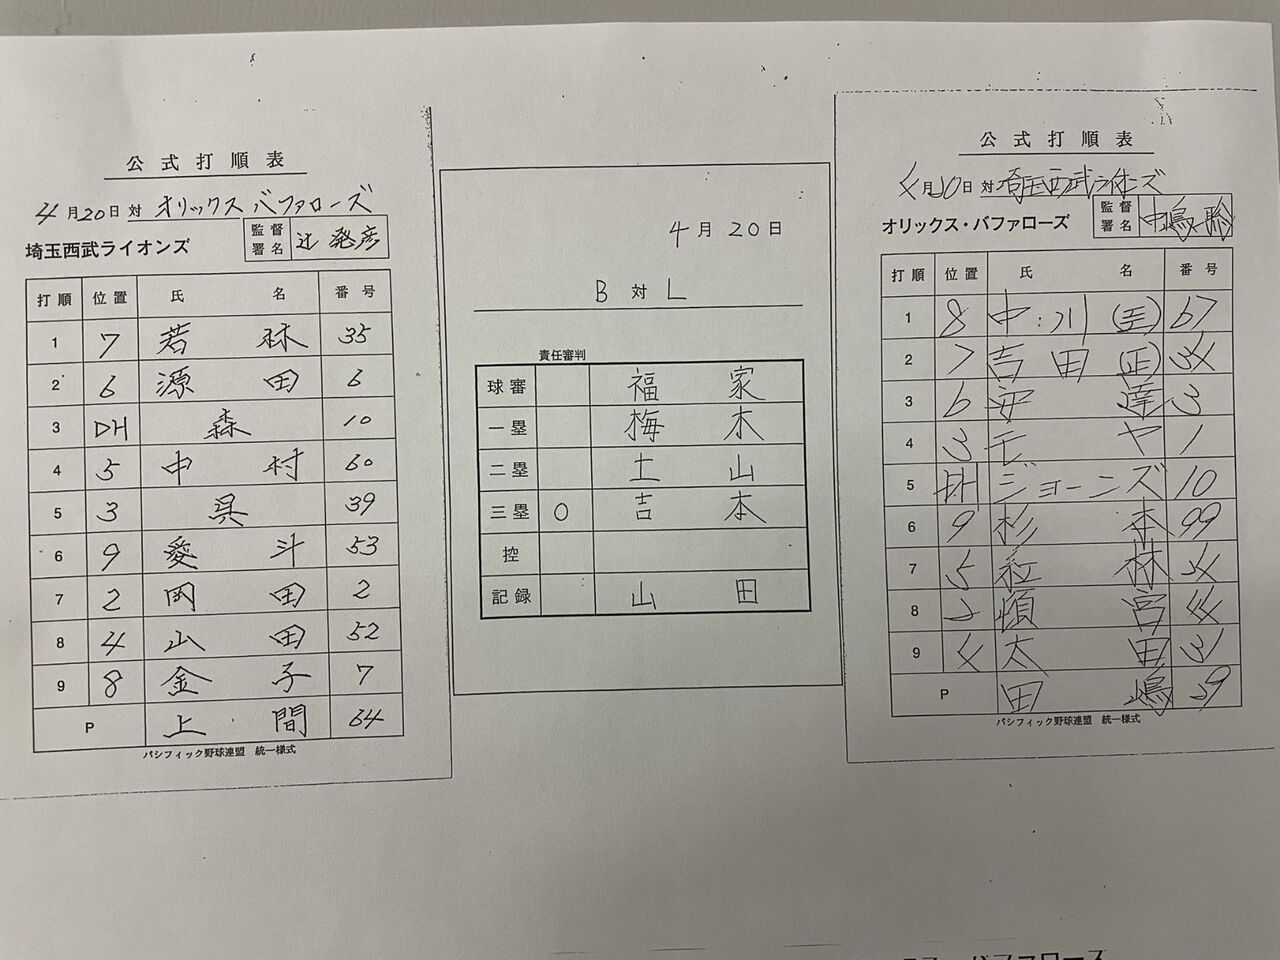 公式打順表
4月20日対 オリックスバファローズ
埼玉西武ライオンズ 監督署名 辻 発彦
打順 位置 氏名 番号
1 7 若林 35
2 6 源田 6
3 DH 森 10
4 5 中村 60
5 3 呉 39
6 9 愛斗 53
7 2 岡田 2
8 4 山田 52
9 8 金子 7
P 上間 64
パシフィック野球連盟 統一様式
4月20日
B 対 L
責任審判
球審 福家
一塁 梅木
二塁 土山
三塁 ○ 吉本
控
記録 山田
公式打順表
4月20日対 埼玉西武ライオンズ
オリックス・バファローズ 監督署名 中嶋 聡
打順 位置 氏名 番号
1 8 中川(圭) 67
2 7 吉田(正) 34
3 6 安達 3
4 3 モヤ 1
5 DH ジョーンズ 10
6 9 杉本 99
7 5 紅林 24
8 2 頓宮 44
9 4 太田 31
P 田嶋 29
パシフィック野球連盟 統一様式